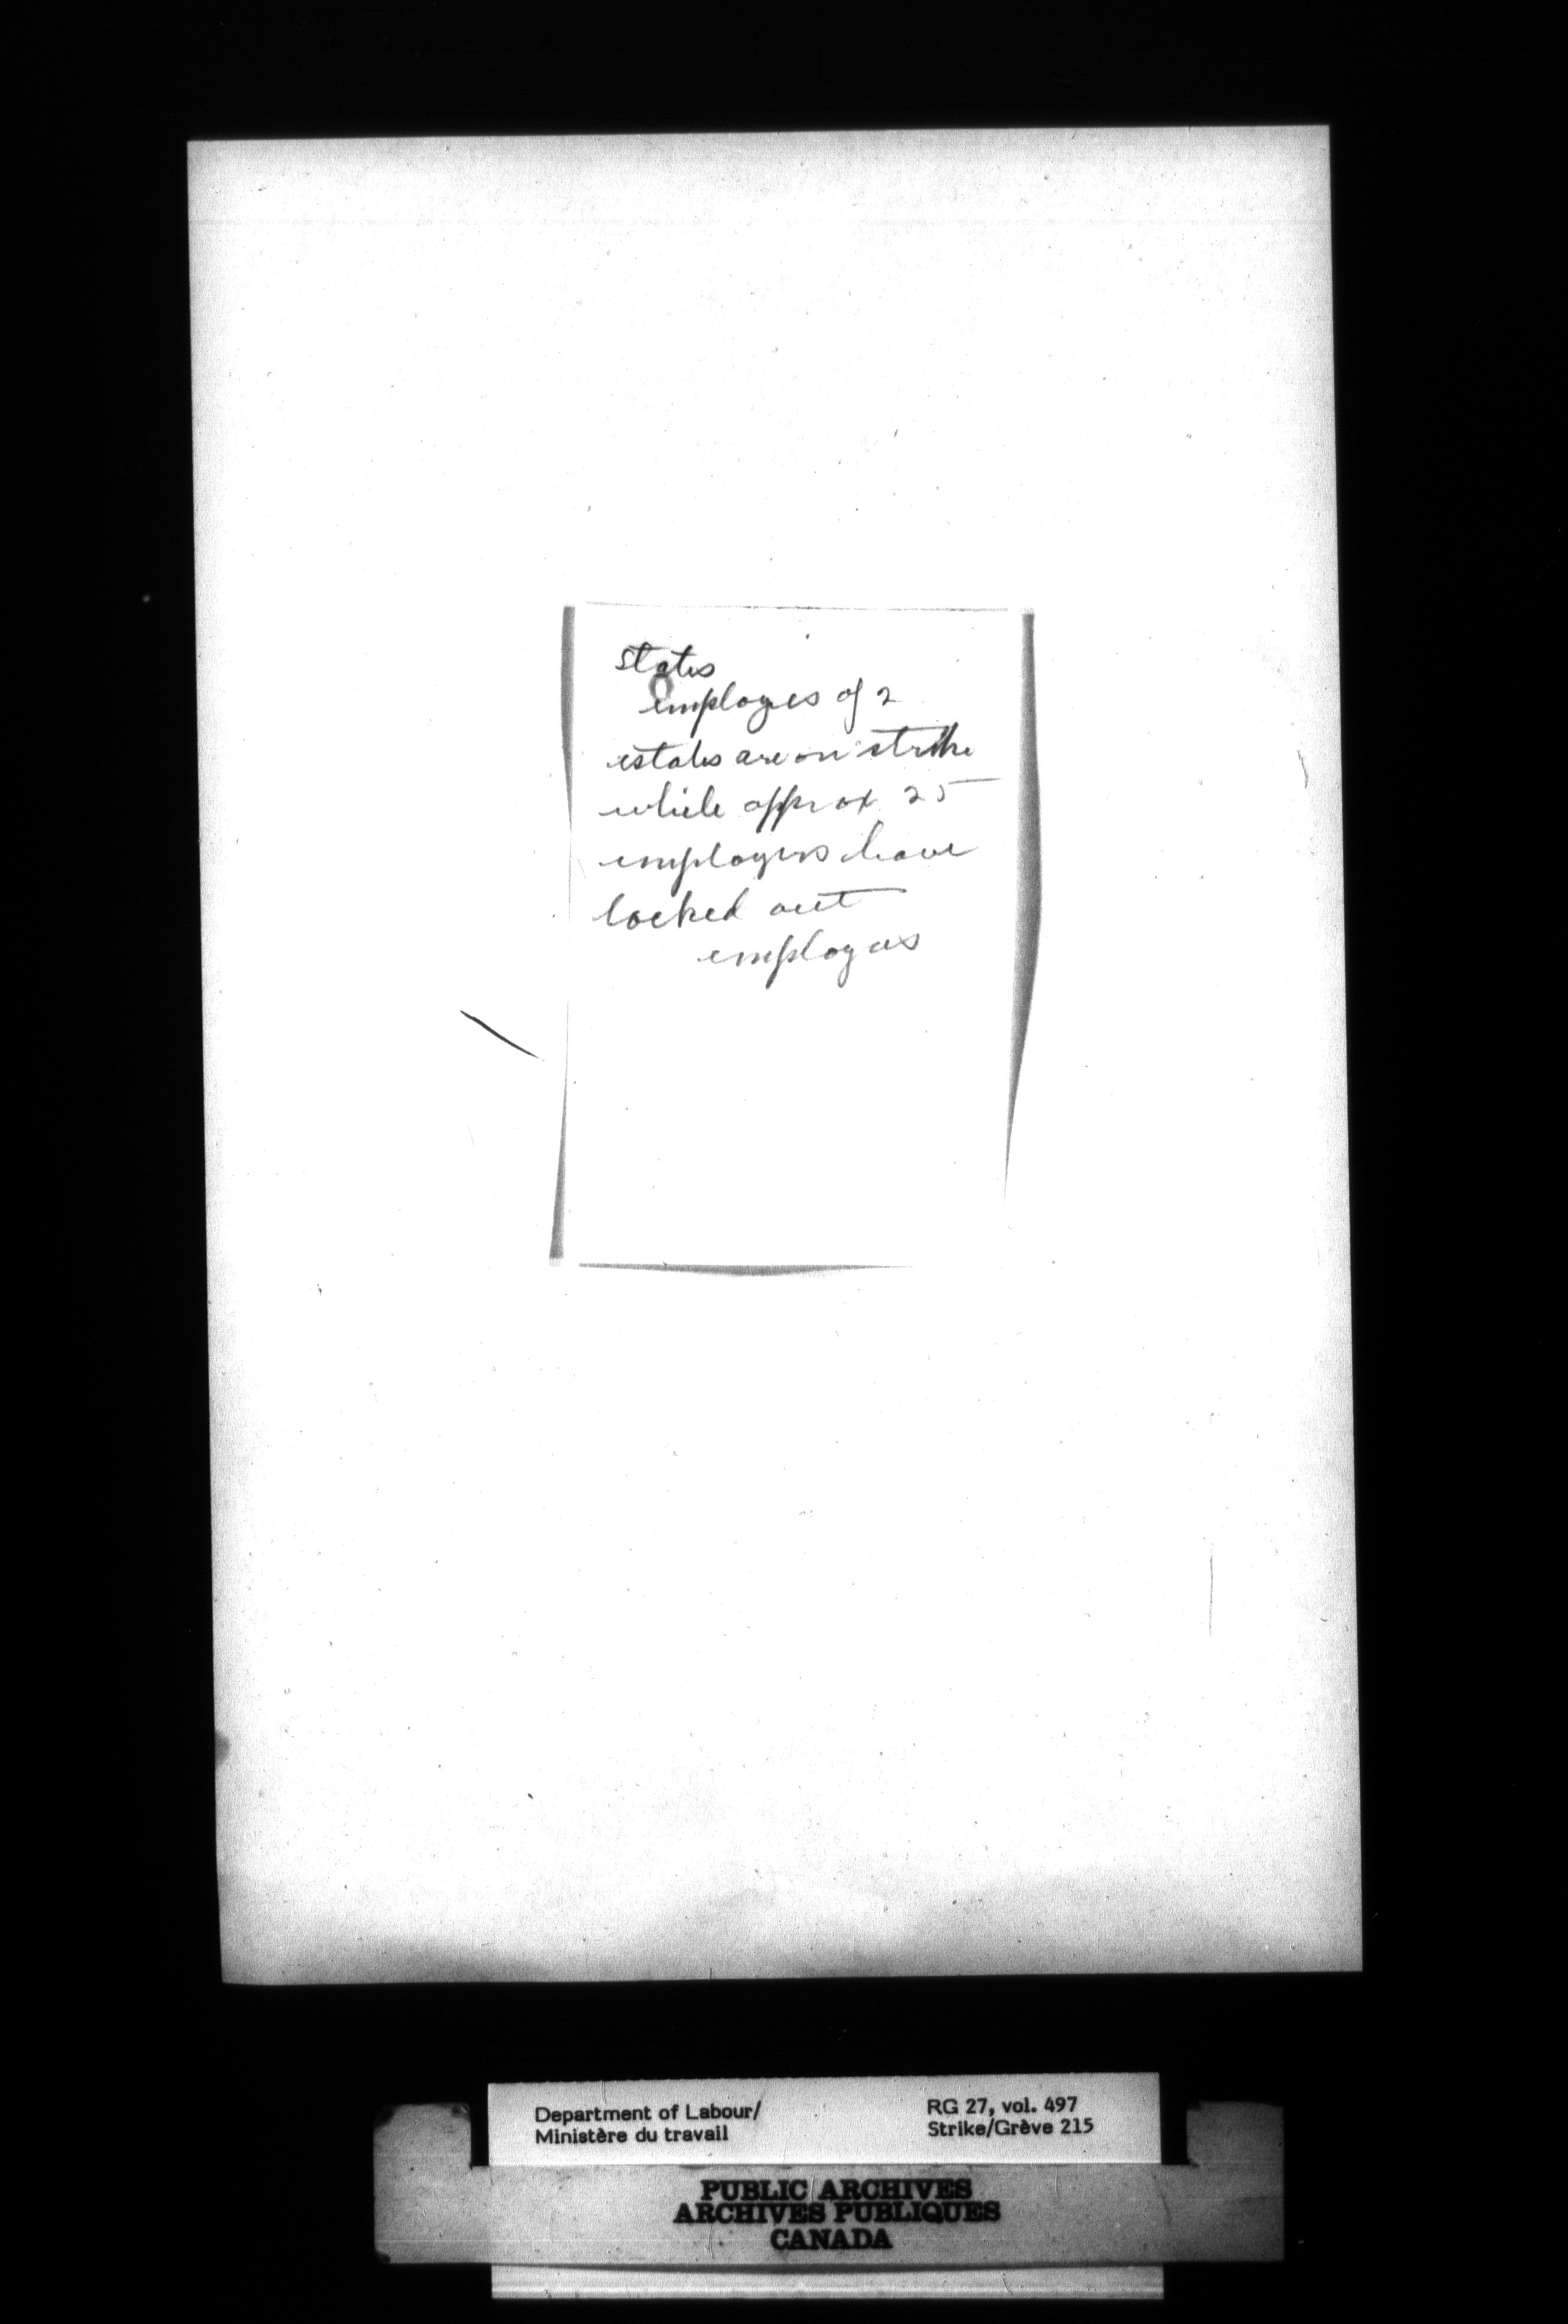 States
employees of 2
estabs are on strike
while approx 25
employers have
locked out
employees
Department of Labour/
Ministère du travail
RG 27, vol. 497
Strike/Grève 215
PUBLIC ARCHIVES
ARCHIVES PUBLIQUES
CANADA